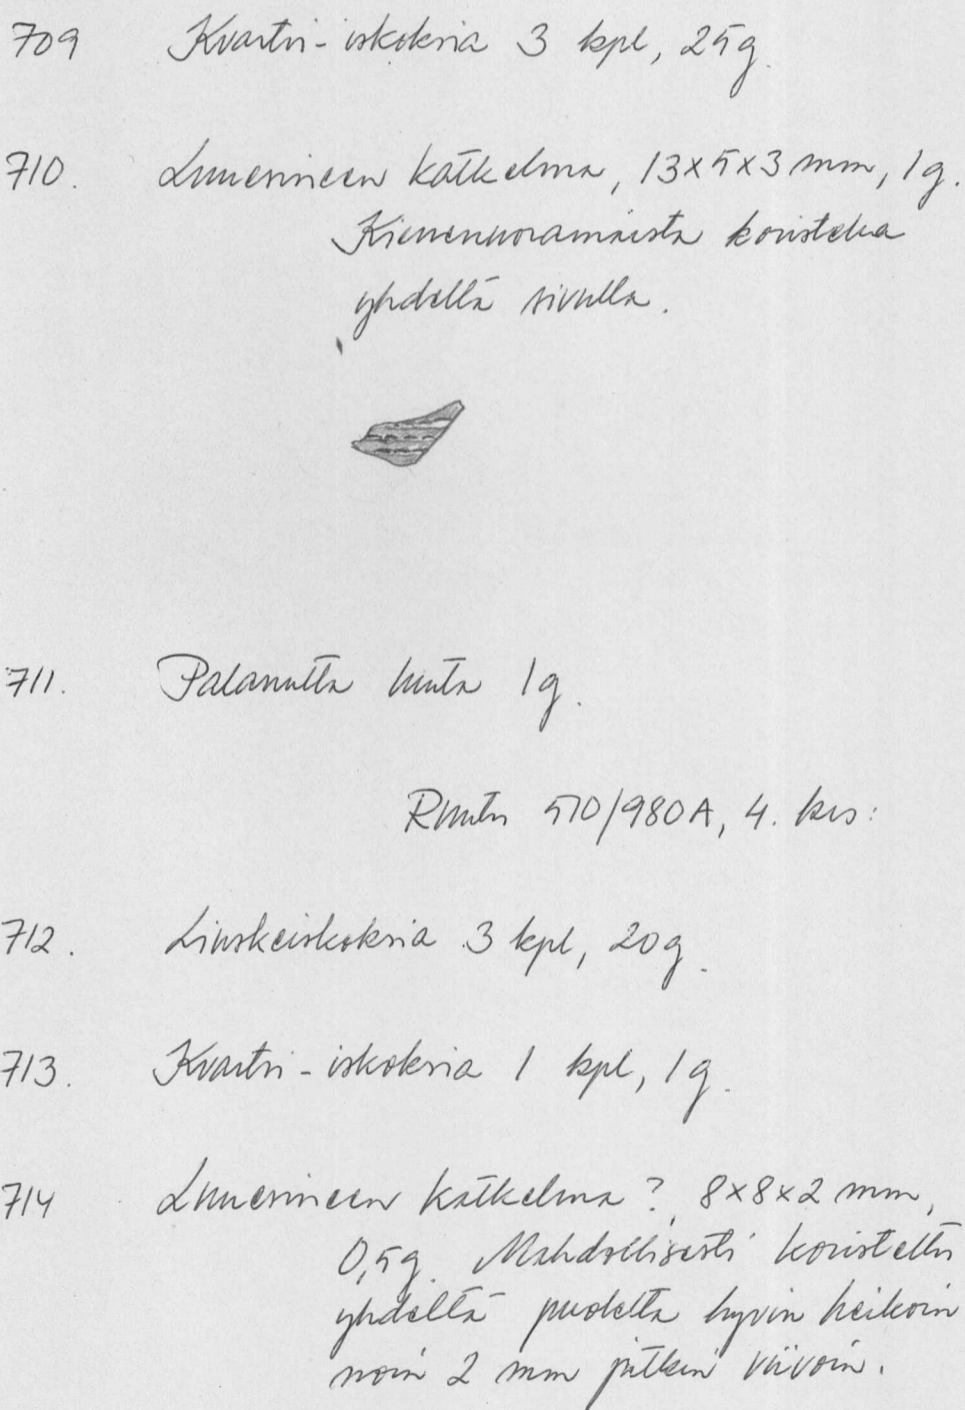 709 Kvartsi-iskoksia 3 kpl, 25g.
710. Luuesineen katkelma, 13x5x3 mm, 1g.
Kierrenuoramaista koristelua
yhdellä sivulla.
711. Palanutta luuta 1g.
Ruutu 570/980A, 4. krs:
712. Liuskeiskoksia 3 kpl, 20g.
713. Kvartsi-iskoksia 1 kpl, 1g.
714 Luuesineen katkelma?, 8x8x2 mm,
0,5g. Mahdollisesti koristeltu
yhdeltä puolelta hyvin heikoin
noin 2 mm pitkin viivoin.